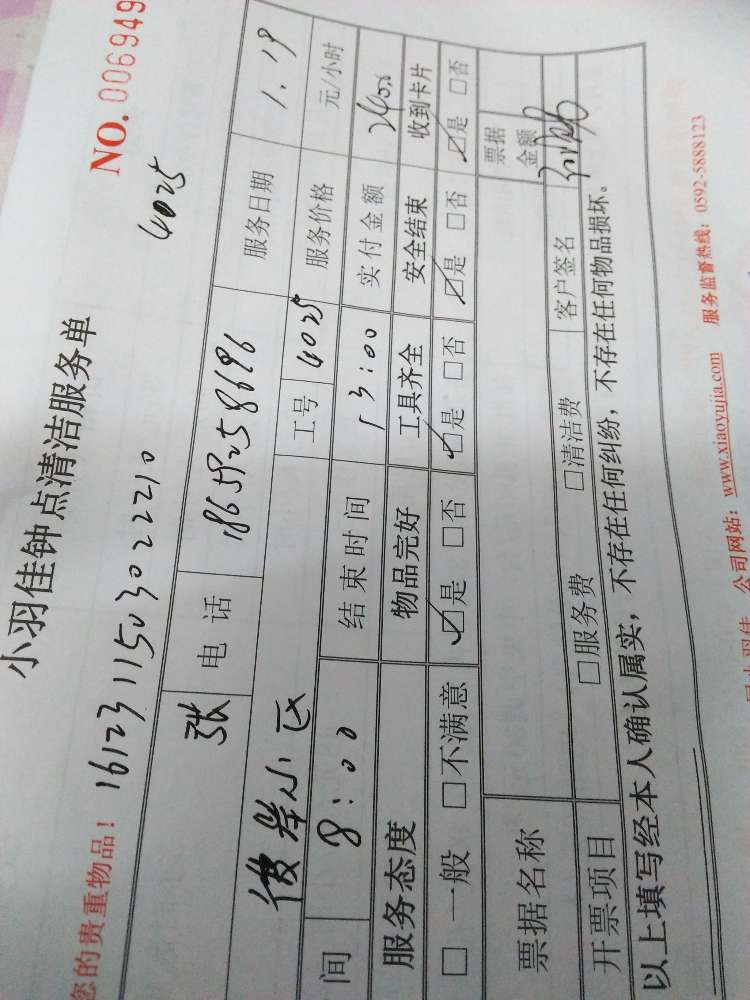 小羽佳钟点清洁服务单
NO. 006949
您的贵重物品！ 16123115030222210 4025
张 电话 18659258696 服务日期 1.19
小区 工号 4025 服务价格 元/小时
间 8:00 结束时间 13:00 实付金额 240.
服务态度 物品完好 工具齐全 安全结束 收到卡片
□ 一般 □不满意 □是 □否 □是 □否 □是 □否 □是 □否
票据名称 票据金额
开票项目 □服务费 □清洁费 客户签名
以上填写经本人确认属实，不存在任何纠纷，不存在任何物品损坏。
公司网站：www.xiaoyujia.com 服务监督热线：0592-5888123